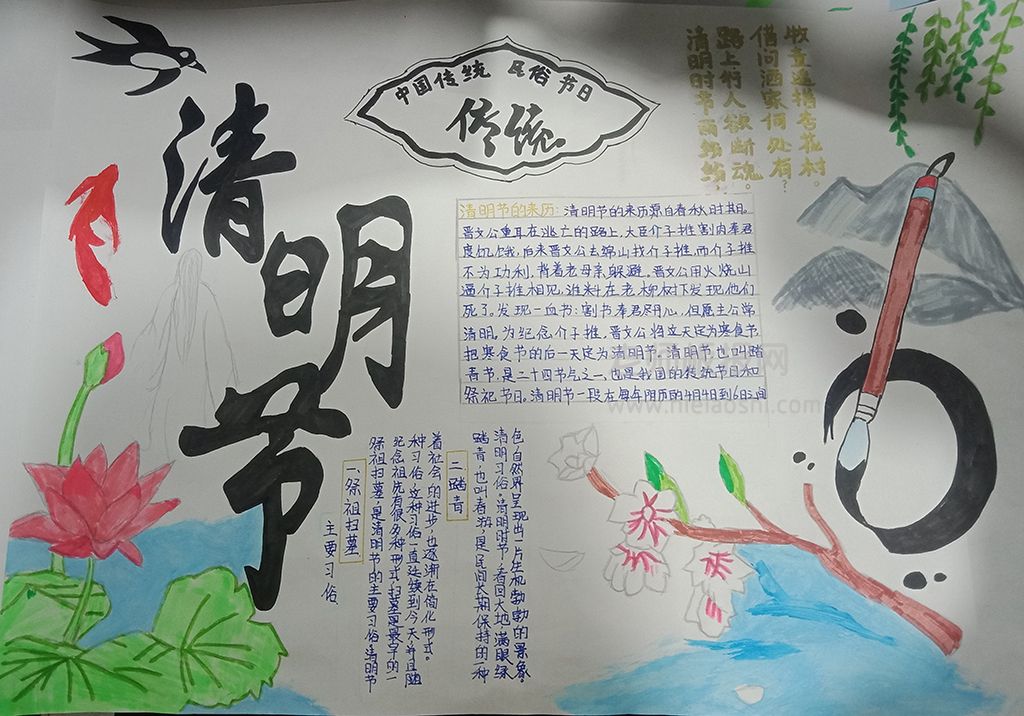 清
明
节
中国传统 民俗节日
传统
清明时节雨纷纷，
路上行人欲断魂。
借问酒家何处有？
牧童遥指杏花村。
清明节的来历：清明节的来历源自春秋时期。
晋文公重耳在逃亡的路上，大臣介子推割肉奉君
度饥饿，后来晋文公去锦山找介子推，而介子推
不为功利，背着老母亲躲避。晋文公用火烧山
逼介子推相见，谁料在老柳树下发现他们
死了。发现一血书：割书奉君尽丹心，但愿主公常
清明。为纪念介子推，晋文公将这天定为寒食节，
把寒食节的后一天定为清明节。清明节也叫踏
青节，是二十四节气之一、也是我国的传统节日和
祭祀节日。清明节一段在每年阳历的4月4日到6日之间
主要习俗
一、祭祖扫墓
祭祖扫墓，是清明节的主要习俗。清明节
纪念祖先有很多种形式，扫墓是最早的一
种习俗，这种习俗一直延续到今天，并且随
着社会的进步，也逐渐在简化形式。
二、踏青
踏青，也叫春游，是民间长期保持的一种
清明习俗。清明时节，春回大地，满眼绿
色，自然界呈现出一片生机勃勃的景象。
www.nielaoshi.com